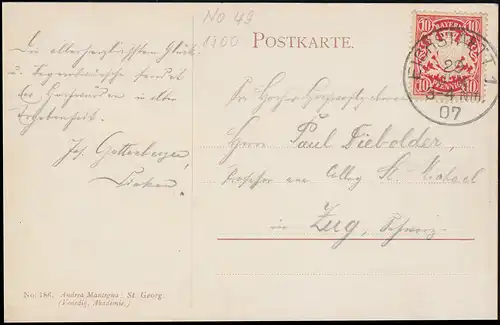 No 49
1400
POSTKARTE.
BAYERN
10 10
PFENNIG
EICHSTÄTT 1
28
3-4 Nm.
07
Die allerherzlichsten Glück-
u. Segenswünsche sendet
in alter
Ergebenheit.
Jos.
Sr. Hochw.
Herrn Paul Diebolder,
Professor am Colleg St. Michael
in Zug, Schweiz.
No. 186. Andrea Mantegna: St. Georg.
(Venedig, Akademie.)